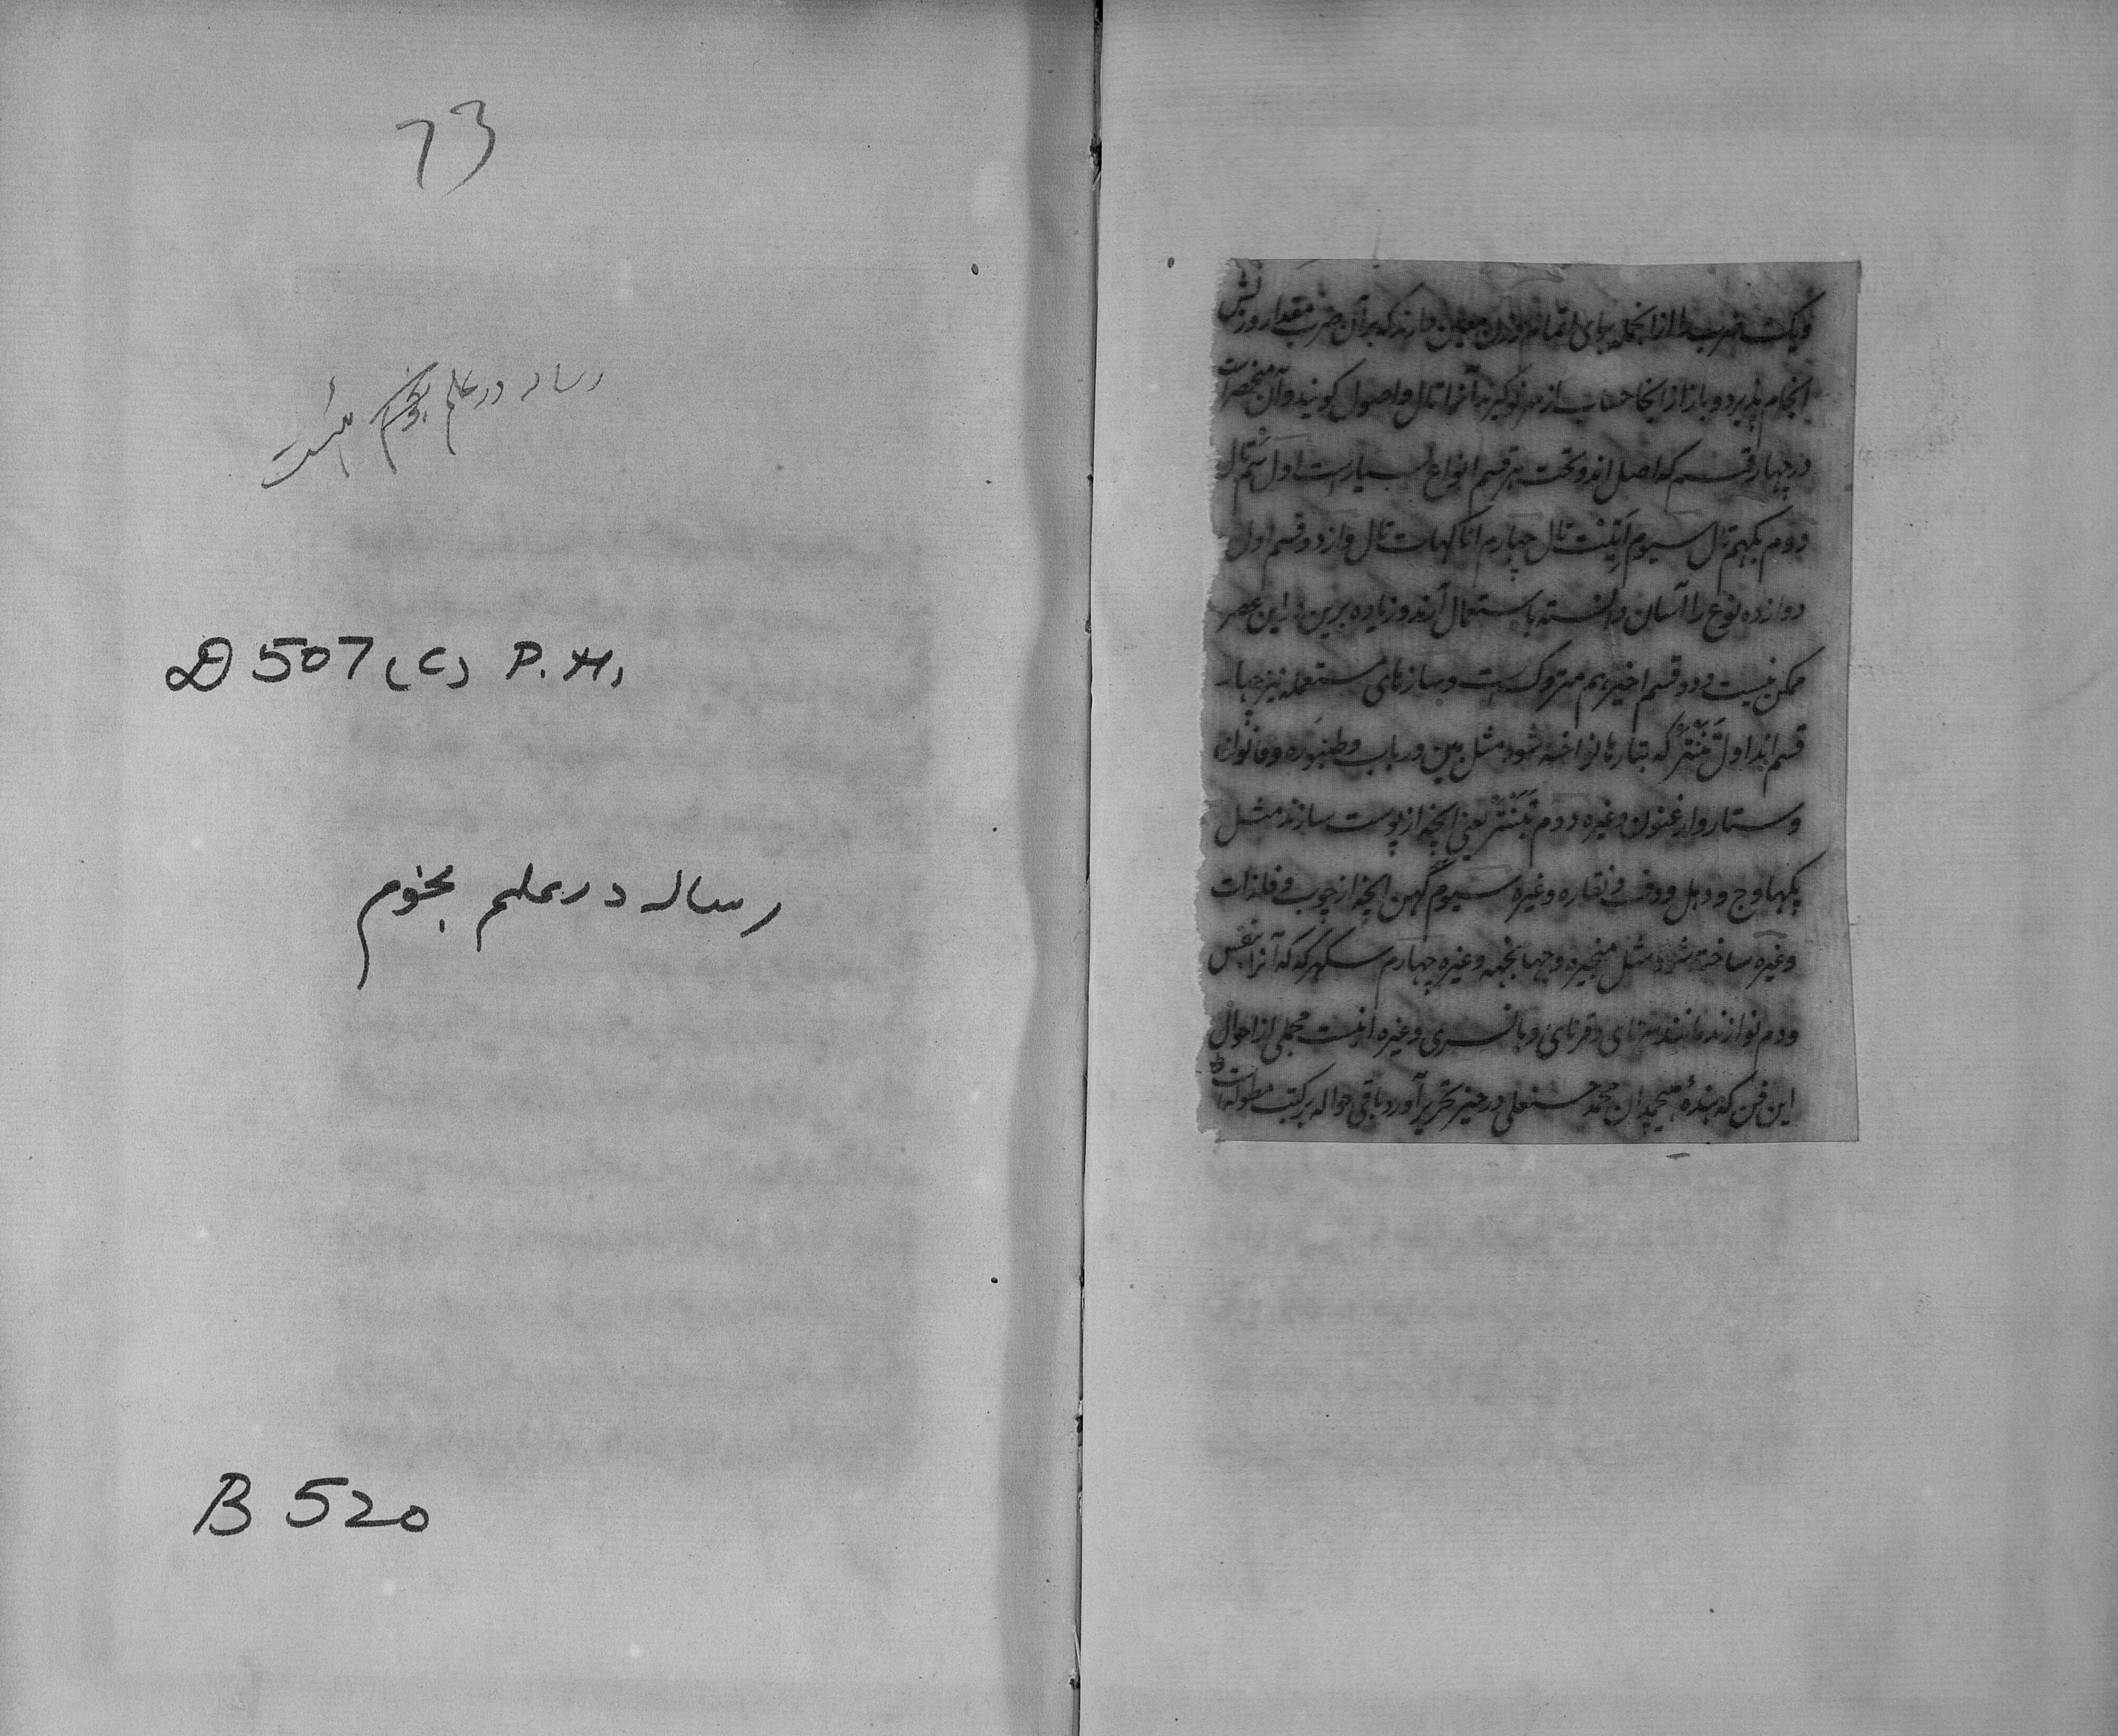 73
رساله در علم نجوم است
D 507 (C) P. H.
رساله در علم نجوم
B 520
و یک ضرب را از انجمله برای اتمام وزن معین دارند که بر آن ضرب مقدار وزنش
انجام پذیرد و باز از انجا حساب از سر نو گیرند آنرا تال و اصول کویند و آن منحصر است
در چهار قسم که اصل اند و تحت هر قسم انواع بسیارست اول سَم تال
دوم بکهم تال سیوم اَتِیْت تال چهارم اناکهات تال و از دو قسم اول
دوازده نوع را آسان دانسته باستعمال آرند و زیاده برین درین عصر
ممکن نیست و دو قسم اخیر هم متروک است و سازهای مستعمله نیز چهار
قسم اند اول تَنْتَر که بتارها نواخته شود مثل بین و رباب و طنبوره و قانون
و ستار و ارغنون و غیره دوم بَتَنْتَر یعنی انچه از پوست سازند مثل
پکهاوج و دهل و دف و نقاره و غیره سیوم گهن انچه از چوب و فلزات
و غیره ساخته شود مثل منجیره و جهانجهه و غیره چهارم سکهر که آنرا بنفس
و دم نوازند مانند سرنای و قرنای و بانسری و غیره اینست مجملی از احوال
این فن که بندهٔ هیچمدان محمد حسنعلی در حیز تحریر آورد باقی حواله بر کتب مطوله است